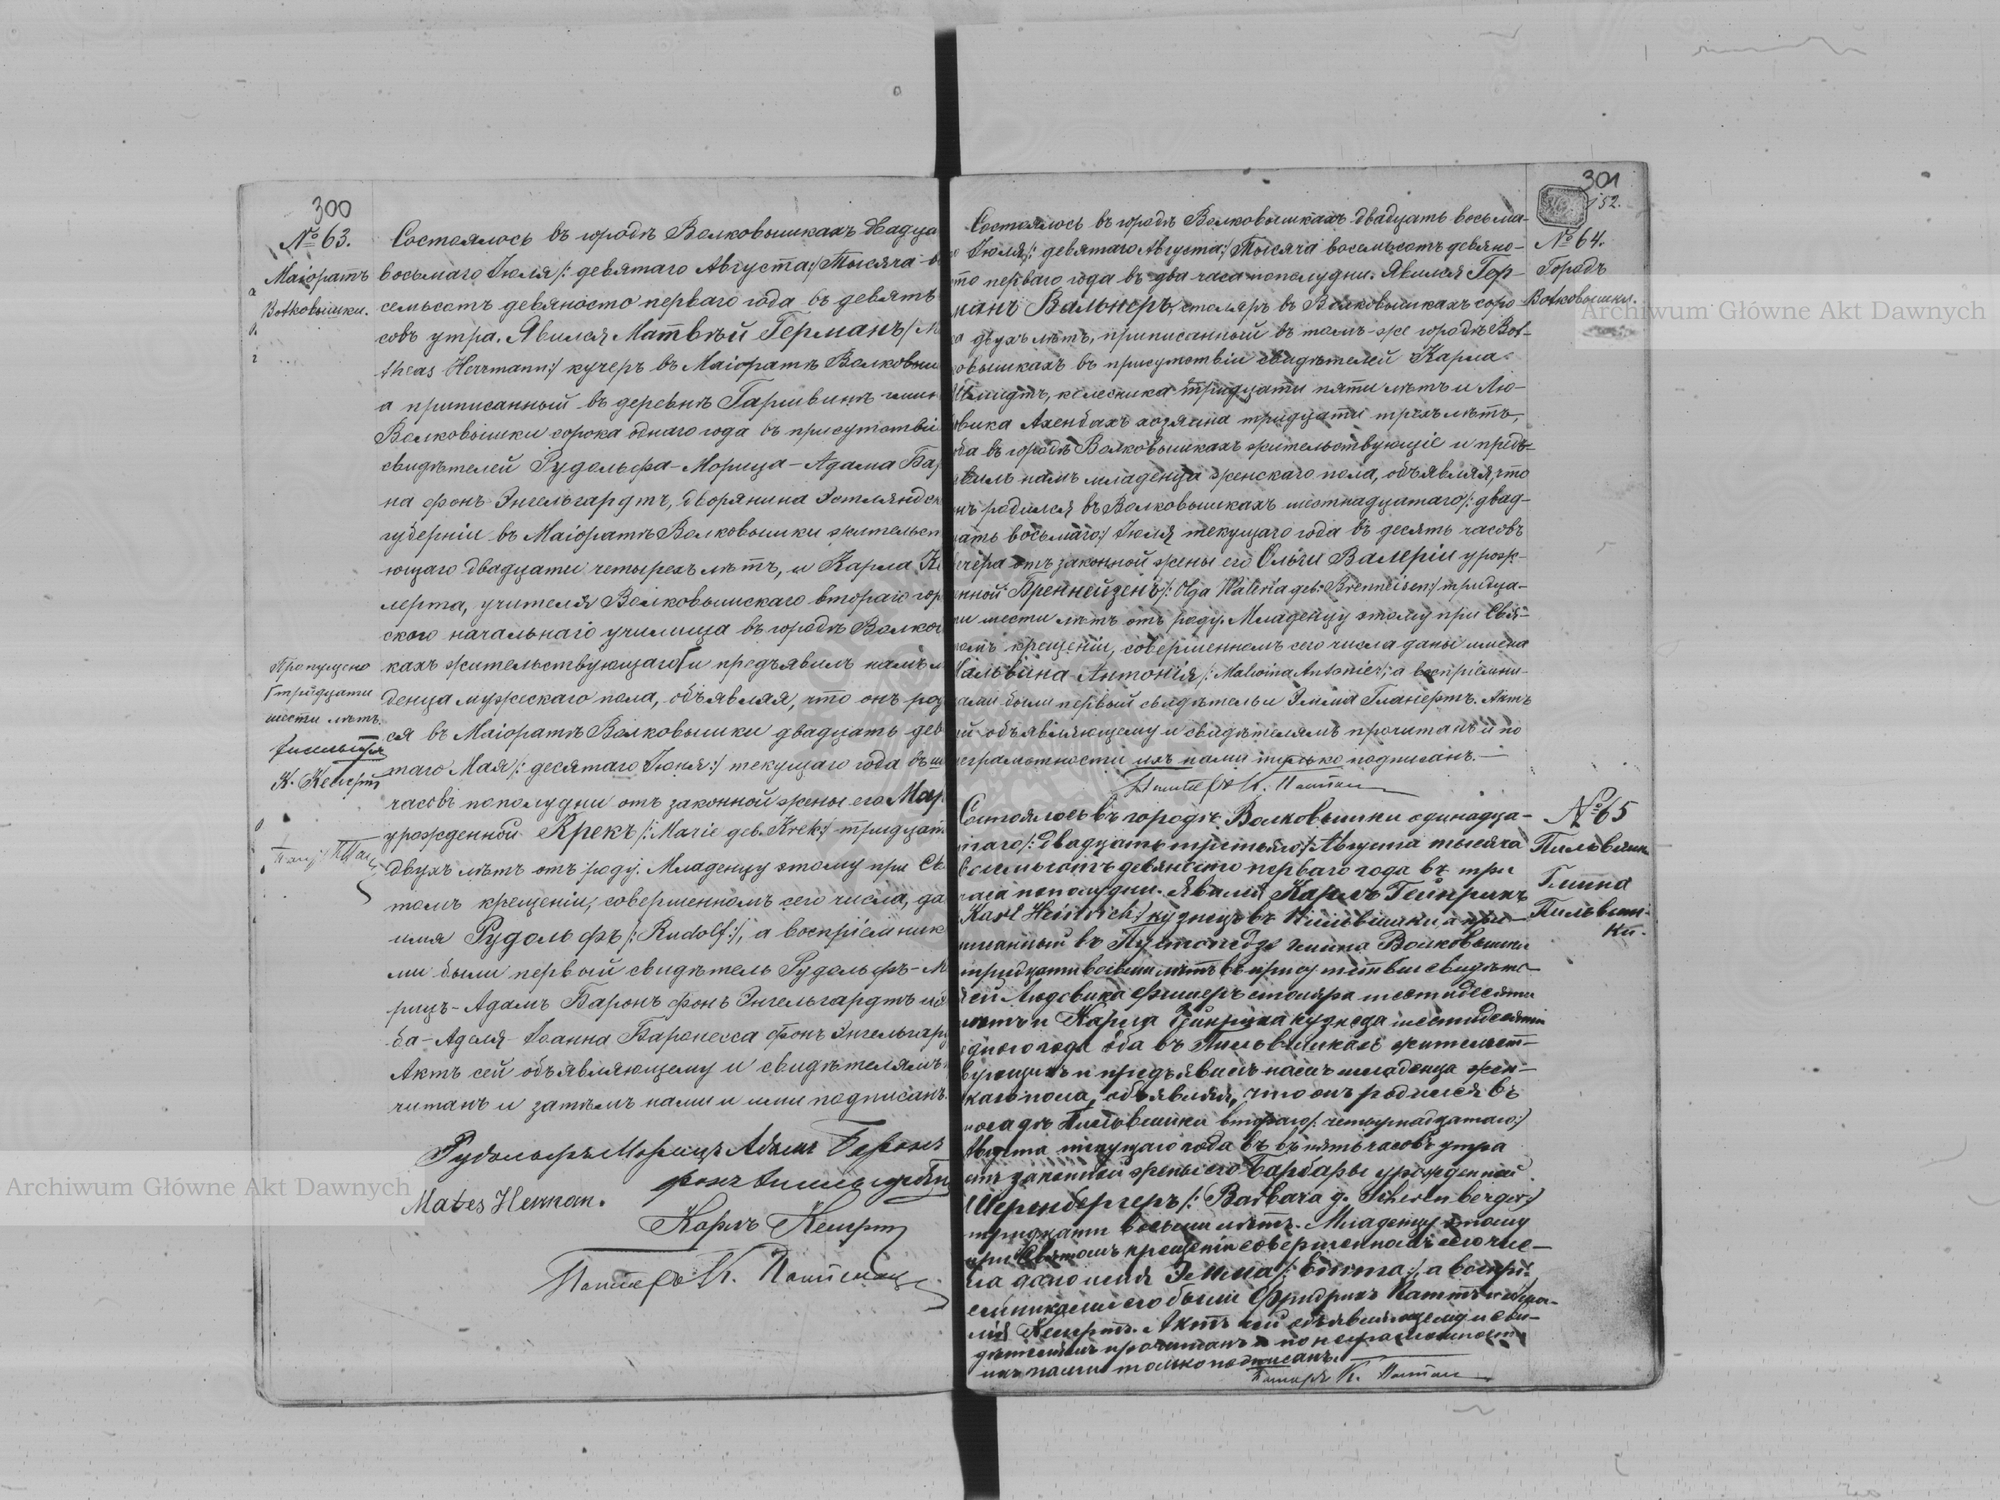 300
№ 63.
Маіоратъ
Волковышки.
Состоялось въ городѣ Волковышкахъ двадца
восьмаго Іюля /: девятаго Августа :/ Тысяча в
семьсотъ девяносто перваго года въ девять
совъ утра. Явился Матвѣй Германъ /: М
theas Herrmann :/ кучеръ въ Маіоратѣ Волковыш
а приписанный въ деревнѣ гмин
Волковышки сорока однаго года въ присутствіи
свидѣтелей Рудольфа-Морица-Адама Бар
на фонъ Энгельгардтъ, дворянина Эстляндск
губерніи въ Маіоратѣ Волковышки жительст
ющаго двадцати четырехъ лѣтъ, и Карла Ке
лерта, учителя Волковышскаго втораго гор
скаго начальнаго училища въ городѣ Волков
кахъ жительствующаго и предъявилъ намъ м
денца мужескаго пола, объявляя, что онъ род
ся въ Маіоратѣ Волковышки двадцать дев
таго Мая /: десятаго Іюня :/ текущаго года въ ш
часовъ пополудни отъ законной жены его Мар
урожденной Крекъ /: Marie geb. Krek :/ тридцат
двухъ лѣтъ отъ роду. Младенцу этому при Св
томъ крещеніи, совершенномъ сего числа, да
имя Рудольфъ /: Rudolf :/, а воспріемник
ми были первый свидѣтель Рудольфъ-М
рицъ-Адамъ Баронъ фонъ Энгельгардтъ и
ба-Аделя-Іоанна Баронесса фонъ Энгельгар
Актъ сей объявляющему и свидѣтелямъ
читанъ и затѣмъ нами и ими подписанъ.
Пропущено
тридцати
шести лѣтъ.
К. Келертъ
Рудольфъ Морицъ Адамъ Баронъ
фонъ
Mates Herman.
Карлъ Келертъ
Пасторъ К.
301
152.
№ 64.
Городъ
Волковышки.
Состоялось въ городѣ Волковышкахъ двадцать восьма-
Іюля /: девятаго Августа :/ Тысяча восемьсотъ девяно-
то перваго года въ два часа пополудни. Явился Гер-
манъ Вальнеръ, столяръ въ Волковышкахъ соро-
двухъ лѣтъ, приписанный въ томъ-же городѣ Вол-
овышкахъ въ присутствіи свидѣтелей Карла
колесника тридцати пяти лѣтъ и Лю-
овика Ахенбахъ хозяина тридцати трехъ лѣтъ,
ба въ городѣ Волковышкахъ жительствующіе и предъ-
вилъ намъ младенца женскаго пола, объявляя, что
нъ родился въ Волковышкахъ шестнадцатаго /: двад-
цать восьмаго :/ Іюля текущаго года въ десять часовъ
чера отъ законной жены его Ольги Валеріи урож-
нной Бреннейзенъ /: Olga Waleria geb. Brenneisen :/ тридца-
ти шести лѣтъ отъ роду. Младенцу этому при Свя-
омъ крещеніи, совершенномъ сего числа даны имена
Мальвина Антонія /: Malwina Antonie :/, а воспріемни-
ами были первый свидѣтель и Эмма Гланертъ. Актъ
й объявляющему и свидѣтелямъ прочитанъ и по
еграмотности ихъ нами только подписанъ.
Пасторъ К.
№ 65
Пильвишк
Гмина
Пильвиш-
ки.
Состоялось въ городѣ Волковышки одинадца-
таго /: двадцать третьяго :/ Августа тысяча
восемьсотъ девяносто перваго года въ три
часа пополудни. Явился Карлъ Гейнрихъ
Karl Heinrich :/ кузнецъ въ Пильвишки, а при-
писанный въ гмина Волковышки
тридцати восьми лѣтъ въ присутствіи свидѣте-
лей Людовика Фишеръ столяра шестидесяти
лѣтъ и Карла Гейнриха кузнеца шестидесяти
одного года оба въ Пильвишкахъ жительст-
вующихъ и предъявилъ намъ младенца жен-
скаго пола, объявляя, что онъ родился въ
посадѣ Пильвишки втораго /: четырнадцатаго :/
Августа текущаго года въ въ пять часовъ утра
отъ законной жены его Барбары урожденной
Шеренбергеръ /: Barbara g. Scherenberger :/
тридцати восьми лѣтъ. Младенцу этому
при Святомъ крещеніи совершенномъ сего чис-
ла дано имя Эмма /: Emma :/, а воспрі-
емниками его были Фридрихъ
Актъ сей объявляющему и сви-
дѣтелямъ прочитанъ и по неграмотности
ихъ нами только подписанъ.
Пасторъ К.
Archiwum Główne Akt Dawnych
Archiwum Główne Akt Dawnych